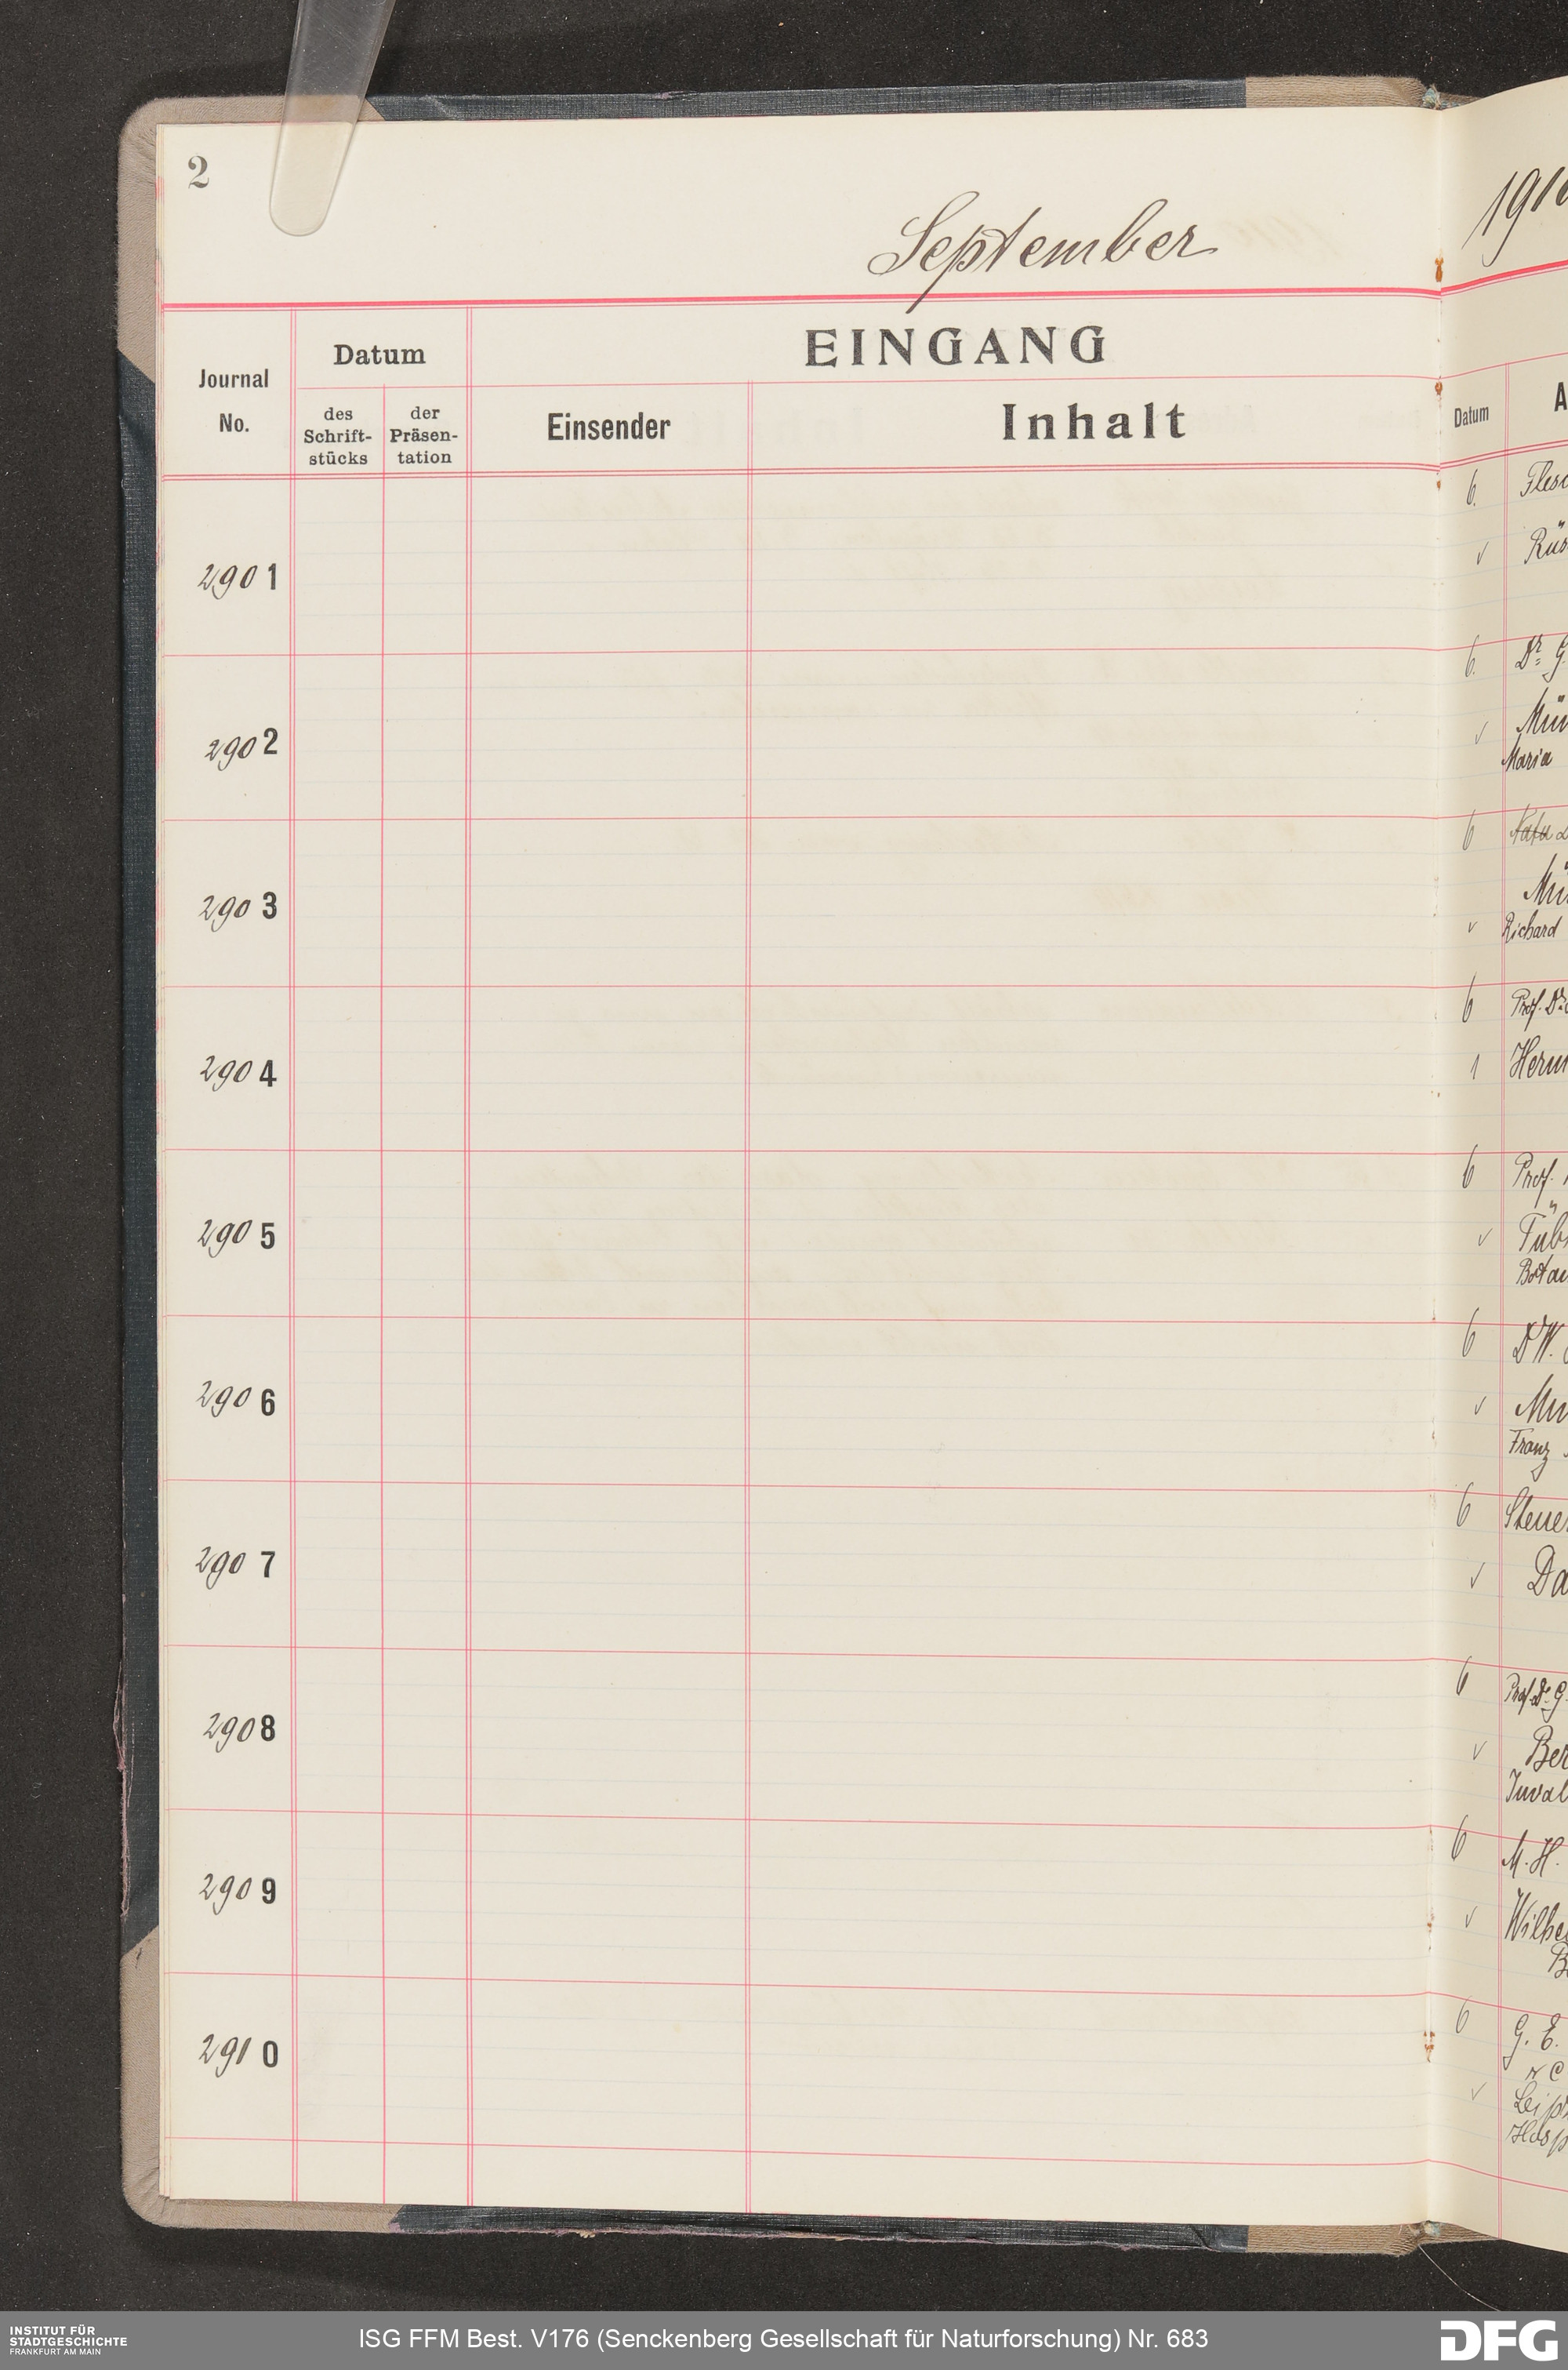 2
September
Journal
No.
Datum
des
Schrift-
stücks
der
Präsen-
tation
EINGANG
Einsender
Inhalt
2901
2902
2903
2904
2905
2906
2907
2908
2909
2910
191
Datum
A
6.
Flesc
Rüs
6.
Dr. G
Mün
Maria
6
Mün
Richard
6
Prof. Dr.
Herm
6
Prof.
Tüb
Botan
6
Dr W.
Mü
Franz
6
Steuer
Da
6
Prof. Dr. G.
Ber
Inval
6
M. H.
Wilhe
B
6
G. E.
Leipz
Hosp
INSTITUT FÜR
STADTGESCHICHTE
FRANKFURT AM MAIN
ISG FFM Best. V176 (Senckenberg Gesellschaft für Naturforschung) Nr. 683
DFG